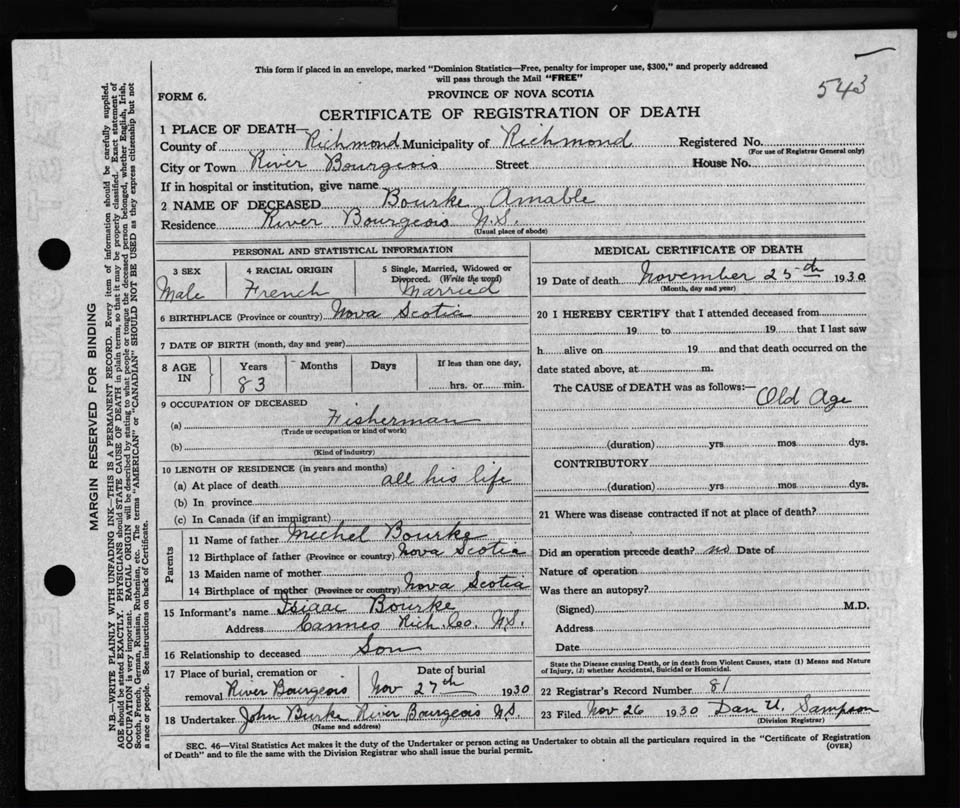 This form if placed in an envelope, marked "Dominion Statistics—Free, penalty for improper use, $300," and properly addressed
will pass through the Mail "FREE"
543
FORM 6.
PROVINCE OF NOVA SCOTIA
CERTIFICATE OF REGISTRATION OF DEATH
1 PLACE OF DEATH—
County of Richmond Municipality of Richmond Registered No.
(For use of Registrar General only)
City or Town River Bourgeois Street House No.
If in hospital or institution, give name
2 NAME OF DECEASED Bourke Amable
Residence River Bourgeois N.S.
(Usual place of abode)
PERSONAL AND STATISTICAL INFORMATION
3 SEX 4 RACIAL ORIGIN 5 Single, Married, Widowed or
Divorced. (Write the word)
Male French Married
6 BIRTHPLACE (Province or country) Nova Scotia
7 DATE OF BIRTH (month, day and year)
8 AGE IN Years Months Days If less than one day,
83 hrs. or min.
9 OCCUPATION OF DECEASED
(a) Fisherman
(Trade or occupation or kind of work)
(b)
(Kind of industry)
10 LENGTH OF RESIDENCE (in years and months)
(a) At place of death all his life
(b) In province
(c) In Canada (if an immigrant)
Parents
11 Name of father Michel Bourke
12 Birthplace of father (Province or country) Nova Scotia
13 Maiden name of mother
14 Birthplace of mother (Province or country) Nova Scotia
15 Informant's name Isiaac Bourke
Address Cannes Rich. Co. N.S.
16 Relationship to deceased Son
17 Place of burial, cremation or Date of burial
removal River Bourgeois Nov 27th 1930
18 Undertaker John Burke River Bourgeois N.S.
(Name and address)
MEDICAL CERTIFICATE OF DEATH
19 Date of death November 25th 1930
(Month, day and year)
20 I HEREBY CERTIFY that I attended deceased from
19 to 19 that I last saw
h alive on 19 and that death occurred on the
date stated above, at m.
The CAUSE of DEATH was as follows:—
Old Age
(duration) yrs mos dys.
CONTRIBUTORY
(duration) yrs. mos. dys.
21 Where was disease contracted if not at place of death?
Did an operation precede death? no Date of
Nature of operation
Was there an autopsy?
(Signed) M.D.
Address
Date
State the Disease causing Death, or in death from Violent Causes, state (1) Means and Nature
of Injury, (2) whether Accidental, Suicidal or Homicidal.
22 Registrar's Record Number 81
23 Filed Nov 26 1930 Dan U. Sampson
(Division Registrar)
SEC. 46—Vital Statistics Act makes it the duty of the Undertaker or person acting as Undertaker to obtain all the particulars required in the "Certificate of Registration
of Death" and to file the same with the Division Registrar who shall issue the burial permit.
(OVER)
MARGIN RESERVED FOR BINDING
N.B.—WRITE PLAINLY WITH UNFADING INK—THIS IS A PERMANENT RECORD. Every item of information should be carefully supplied.
AGE should be stated EXACTLY. PHYSICIANS should STATE CAUSE OF DEATH in plain terms, so that it may be properly classified. Exact statement of
OCCUPATION is very important. RACIAL ORIGIN will be described by stating to what people or tongue the deceased person belonged, whether English, Irish,
Scotch, French, German, Russian, Ruthenian, etc. The terms "AMERICAN" or "CANADIAN" SHOULD NOT BE USED as they express citizenship but not
a race or people. See instructions on back of Certificate.